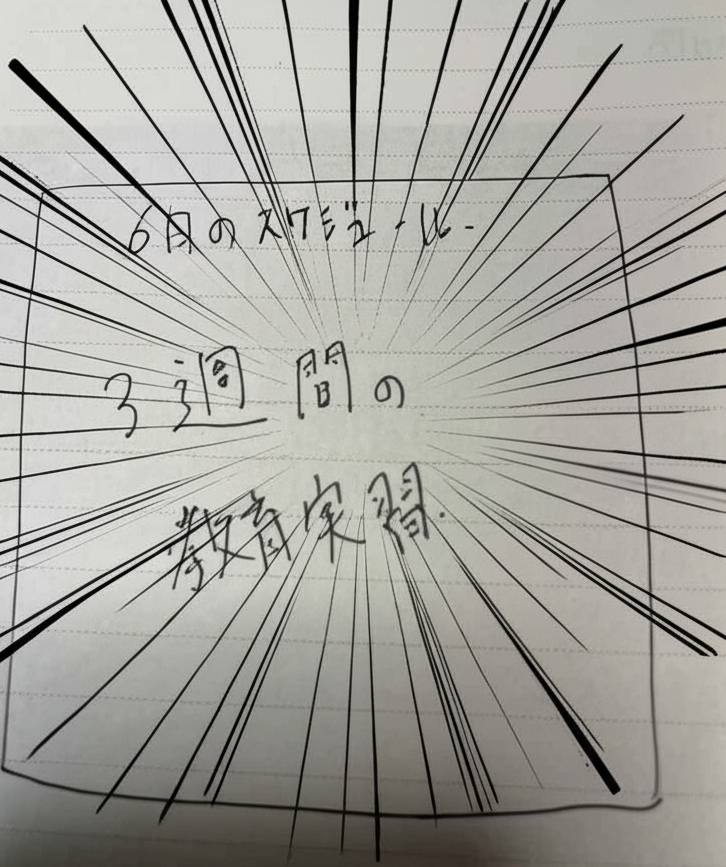 6月のスケジュール
3週間の
教育実習.